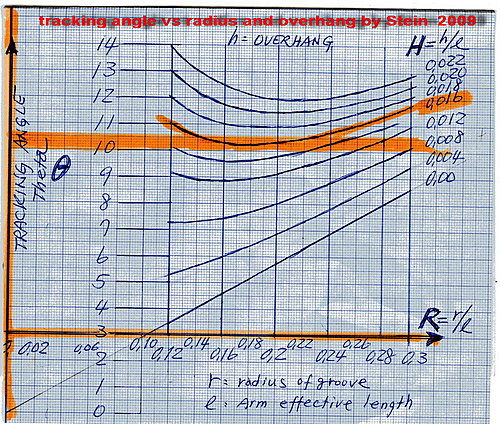 tracking angle vs radius and overhang by Stein 2009
h = OVERHANG
H = h/l
14
13
12
11
10
9
8
7
6
5
4
3
2
1
0
TRACKING ANGLE
Theta θ
0,022
0,020
0,018
0,016
0,012
0,008
0,004
0,00
R = r/l
0,02 0,06 0,10 0,14 0,18 0,22 0,26
0,12 0,16 0,2 0,24 0,28 0,3
r = radius of groove
l = Arm effective length